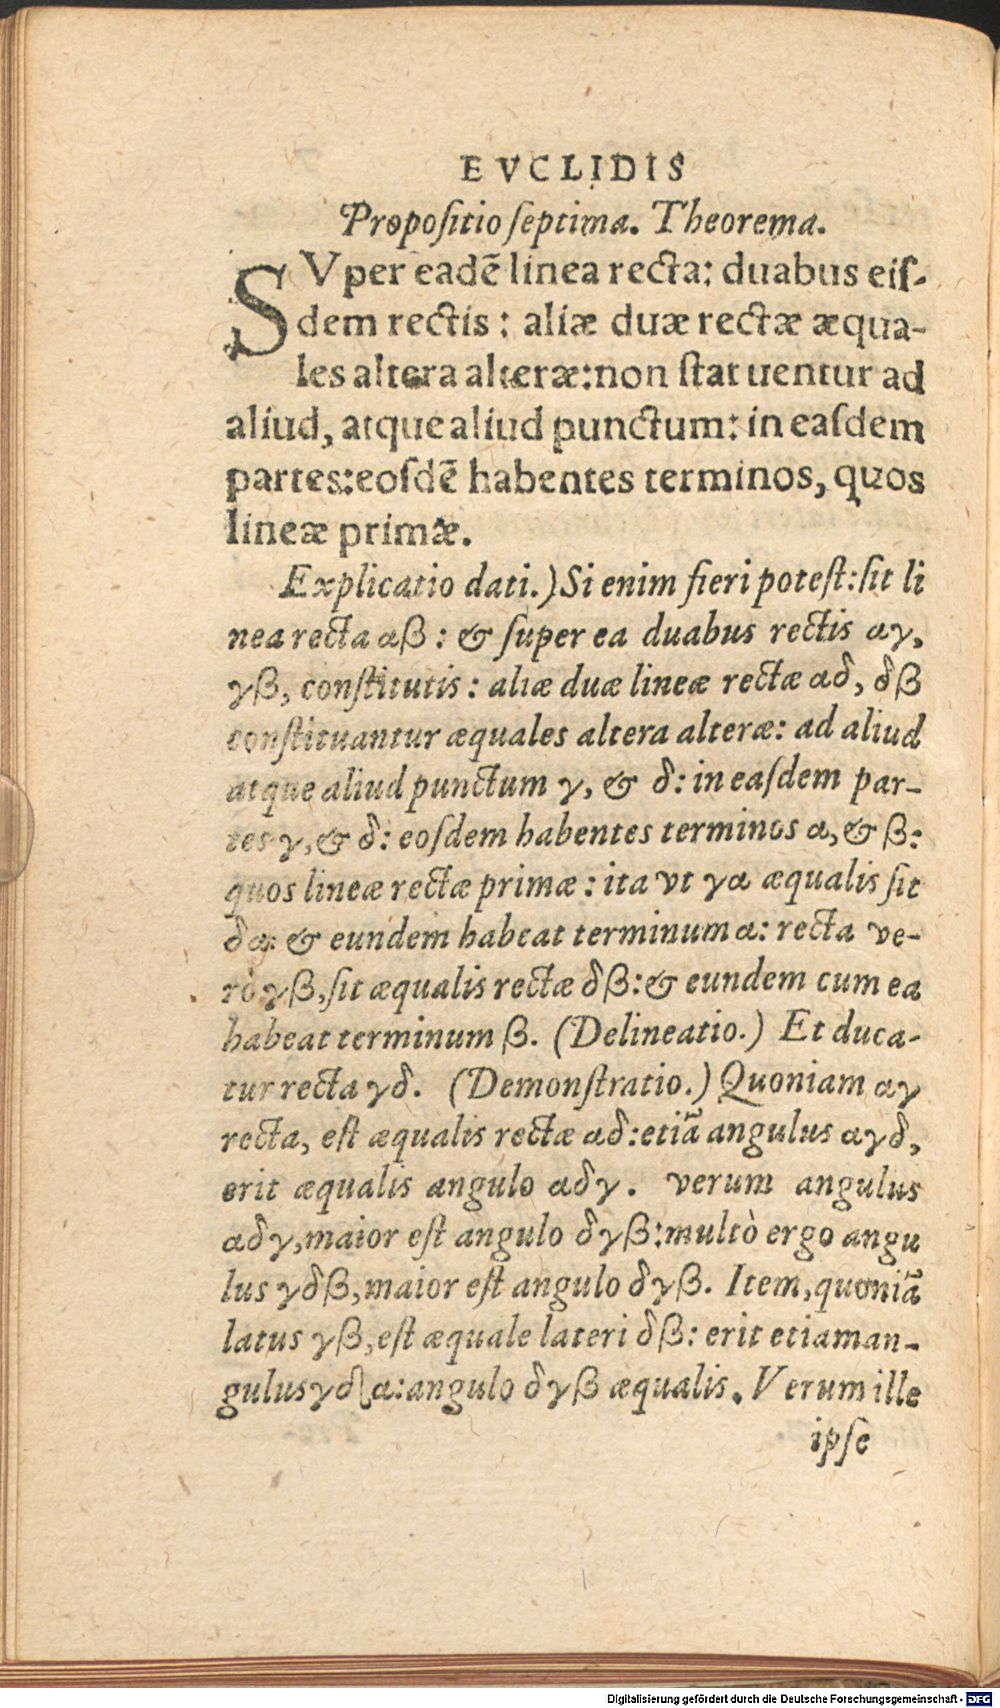 EVCLIDIS
Propoſitio ſeptima. Theorema.
SVper eadẽ linea recta: duabus eiſ-
dem rectis: aliæ duæ rectæ æqua-
les altera alteræ: non ſtatuentur ad
aliud, atque aliud punctum: in eaſdem
partes: eoſdẽ habentes terminos, quos
lineæ primæ.
Explicatio dati.) Si enim fieri poteſt: ſit li
nea recta αβ: & ſuper ea duabus rectis αγ,
γβ, conſtitutis: aliæ duæ lineæ rectæ αδ, δβ
conſtituantur æquales altera alteræ: ad aliud
atque aliud punctum γ, & δ: in eaſdem par-
tes γ, & δ: eoſdem habentes terminos α, & β:
quos lineæ rectæ primæ: ita vt γα æqualis ſit
δα: & eundem habeat terminum α: recta ve-
rò γβ, ſit æqualis rectæ δβ: & eundem cum ea
habeat terminum β. (Delineatio.) Et duca-
tur recta γδ. (Demonſtratio.) Quoniam αγ
recta, eſt æqualis rectæ αδ: etiã angulus αγδ,
erit æqualis angulo αδγ. verum angulus
αδγ, maior eſt angulo δγβ: multò ergo angu
lus γδβ, maior eſt angulo δγβ. Item, quoniã
latus γβ, eſt æquale lateri δβ: erit etiam an-
gulus γδα: angulo δγβ æqualis. Verum ille
ipſe
Digitalisierung gefördert durch die Deutsche Forschungsgemeinschaft - DFG